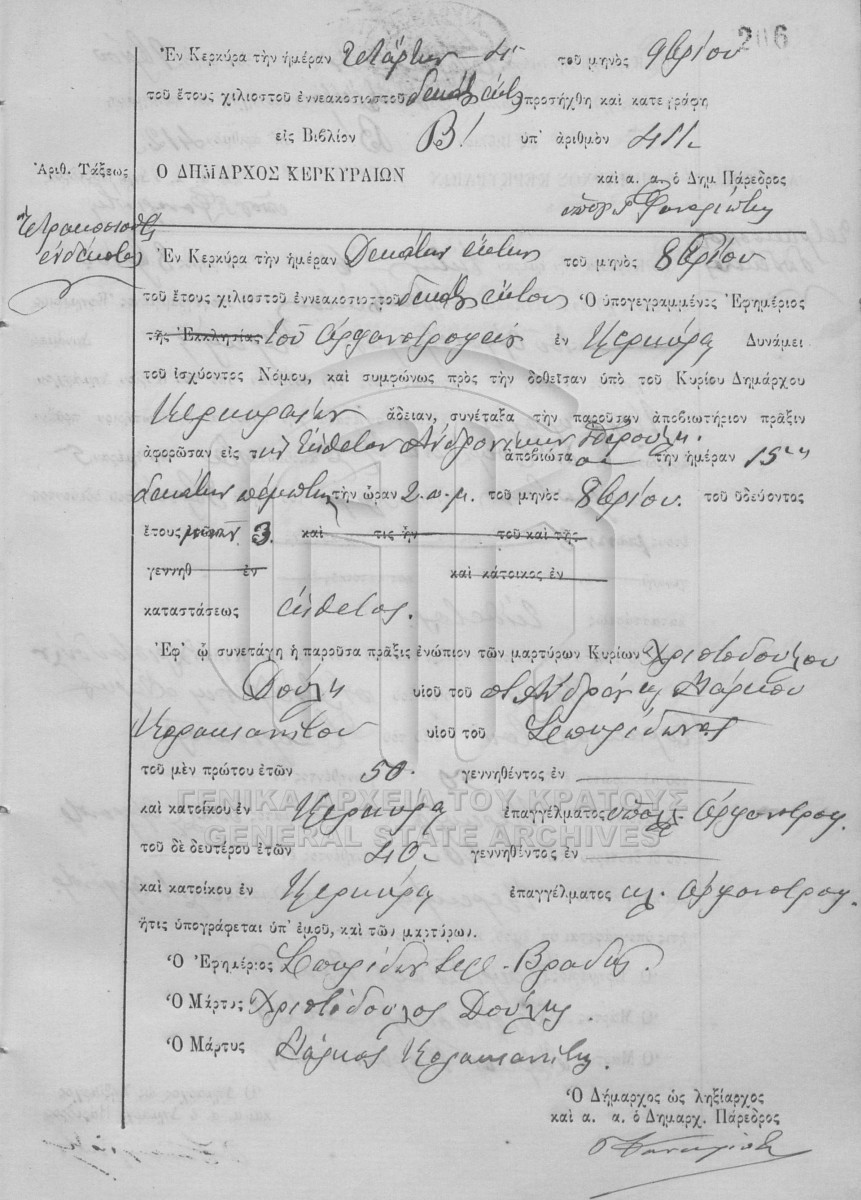 206
Ἐν Κερκύρα τὴν ἡμέραν τετάρτην 4 τοῦ μηνὸς 9βρίου
τοῦ ἔτους χιλιοστοῦ ἐννεακοσιοστοῦ δεκάτου ἕκτου προσήχθη καὶ κατεγράφη
εἰς Βιβλίον Β! ὑπ' ἀριθμὸν 411
Ἀριθ. Τάξεως Ο ΔΗΜΑΡΧΟΣ ΚΕΡΚΥΡΑΙΩΝ καὶ α. α. ὁ Δημ Πάρεδρος
τετρακοσιοστὸς
ἑνδέκατος
Ἐν Κερκύρα τὴν ἡμέραν Δεκάτην ἕκτην τοῦ μηνὸς 8βρίου
τοῦ ἔτους χιλιοστοῦ ἐννεακοσιοστοῦ δεκάτου ἕκτου Ὁ ὑπογεγραμμένος Ἐφημέριος
τῆς Ἐκκλησίας τοῦ Ὀρφανοτροφείου ἐν Κερκύρα Δυνάμει
τοῦ ἰσχύοντος Νόμου, καὶ συμφώνως πρὸς τὴν δοθεῖσαν ὑπὸ τοῦ Κυρίου Δημάρχου
Κερκυραίων ἄδειαν, συνέταξα τὴν παροῦσαν ἀποβιωτήριον πρᾶξιν
ἀφορῶσαν εἰς τὴν ἔκθετον Ἀνδρονίκην ἀποβιώσασα τὴν ἡμέραν 15ην
δεκάτην πέμπτην τὴν ὥραν 2. π. μ. τοῦ μηνὸς 8βρίου. τοῦ ὁδεύοντος
ἔτους μηνῶν 3. καὶ τις ἦν τοῦ καὶ τῆς
γεννηθ ἐν καὶ κάτοικος ἐν
καταστάσεως ἔκθετος.
Ἐφ' ᾧ συνετάγη ἡ παροῦσα πρᾶξις ἐνώπιον τῶν μαρτύρων Κυρίων Χριστοδούλου
Δούλη υἱοῦ τοῦ π. Ἀνδρέα κ. Μάρκου
Κολακιανίτου υἱοῦ τοῦ Σπυρίδωνος
τοῦ μὲν πρώτου ἐτῶν 50. γεννηθέντος ἐν
καὶ κατοίκου ἐν Κερκύρα ἐπαγγέλματος ὑπαλ. Ὀρφανοτροφ.
ΓΕΝΙΚΑ ΑΡΧΕΙΑ ΤΟΥ ΚΡΑΤΟΥΣ
GENERAL STATE ARCHIVES
τοῦ δὲ δευτέρου ἐτῶν 40 γεννηθέντος ἐν
καὶ κατοίκου ἐν Κερκύρα ἐπαγγέλματος κλ. Ὀρφανοτροφ.
ἥτις ὑπογράφεται ὑπ' ἐμοῦ, καὶ τῶν μαρτύρων.
Ὁ Ἐφημέριος Σπυρίδων Ἱερ. Βραδῆς.
Ὁ Μάρτυς Χριστόδουλος Δούλης.
Ὁ Μάρτυς Μάρκος Κολακιανίτης.
Ὁ Δήμαρχος ὡς ληξίαρχος
καὶ α. α. ὁ Δημαρχ. Πάρεδρος